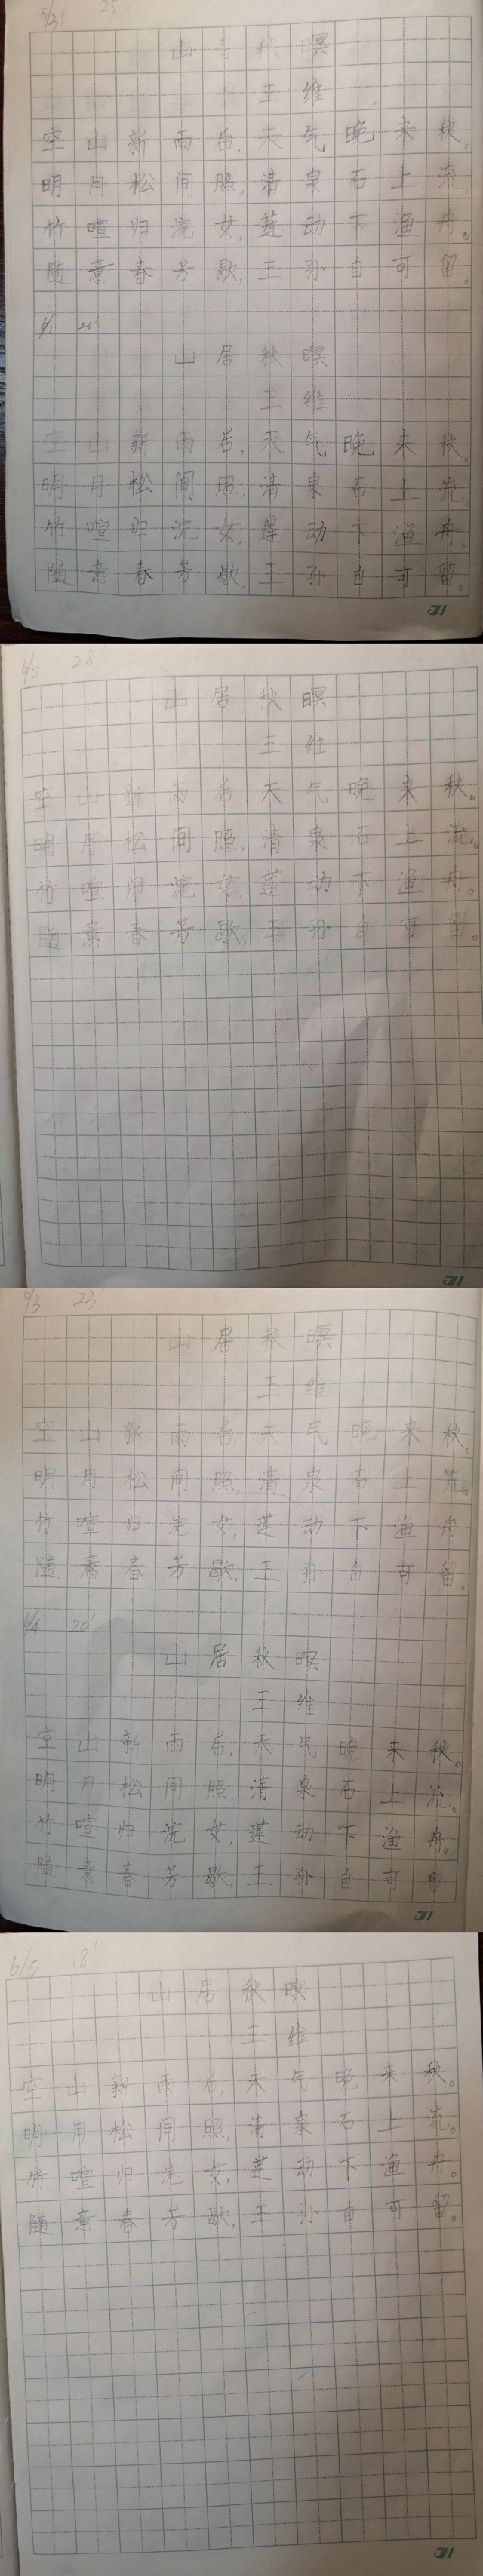 5/31 25'
山 秋暝
王维
空山新雨后,天气晚来秋。
明月松间照,清泉石上流。
竹喧归浣女,莲动下渔舟。
随意春芳歇,王孙自可留。
6/1
山居秋暝
王维
空山新雨后,天气晚来秋。
明月松间照,清泉石上流。
竹喧归浣女,莲动下渔舟。
随意春芳歇,王孙自可留。
6/2 28'
山居秋暝
王维
空山新雨后,天气晚来秋。
明月松间照,清泉石上流。
竹喧归浣女,莲动下渔舟。
随意春芳歇,王孙自可留。
6/3 23'
山居秋暝
王维
空山新雨后,天气晚来秋。
明月松间照,清泉石上流。
竹喧归浣女,莲动下渔舟
随意春芳歇,王孙自可留。
6/4 20'
山居秋暝
王维
空山新雨后,天气晚来秋。
明月松间照,清泉石上流。
竹喧归浣女,莲动下渔舟。
随意春芳歇,王孙自可留
6/5 18'
山居秋暝
王维
空山新雨后,天气晚来秋。
明月松间照,清泉石上流。
竹喧归浣女,莲动下渔舟。
随意春芳歇,王孙自可留。